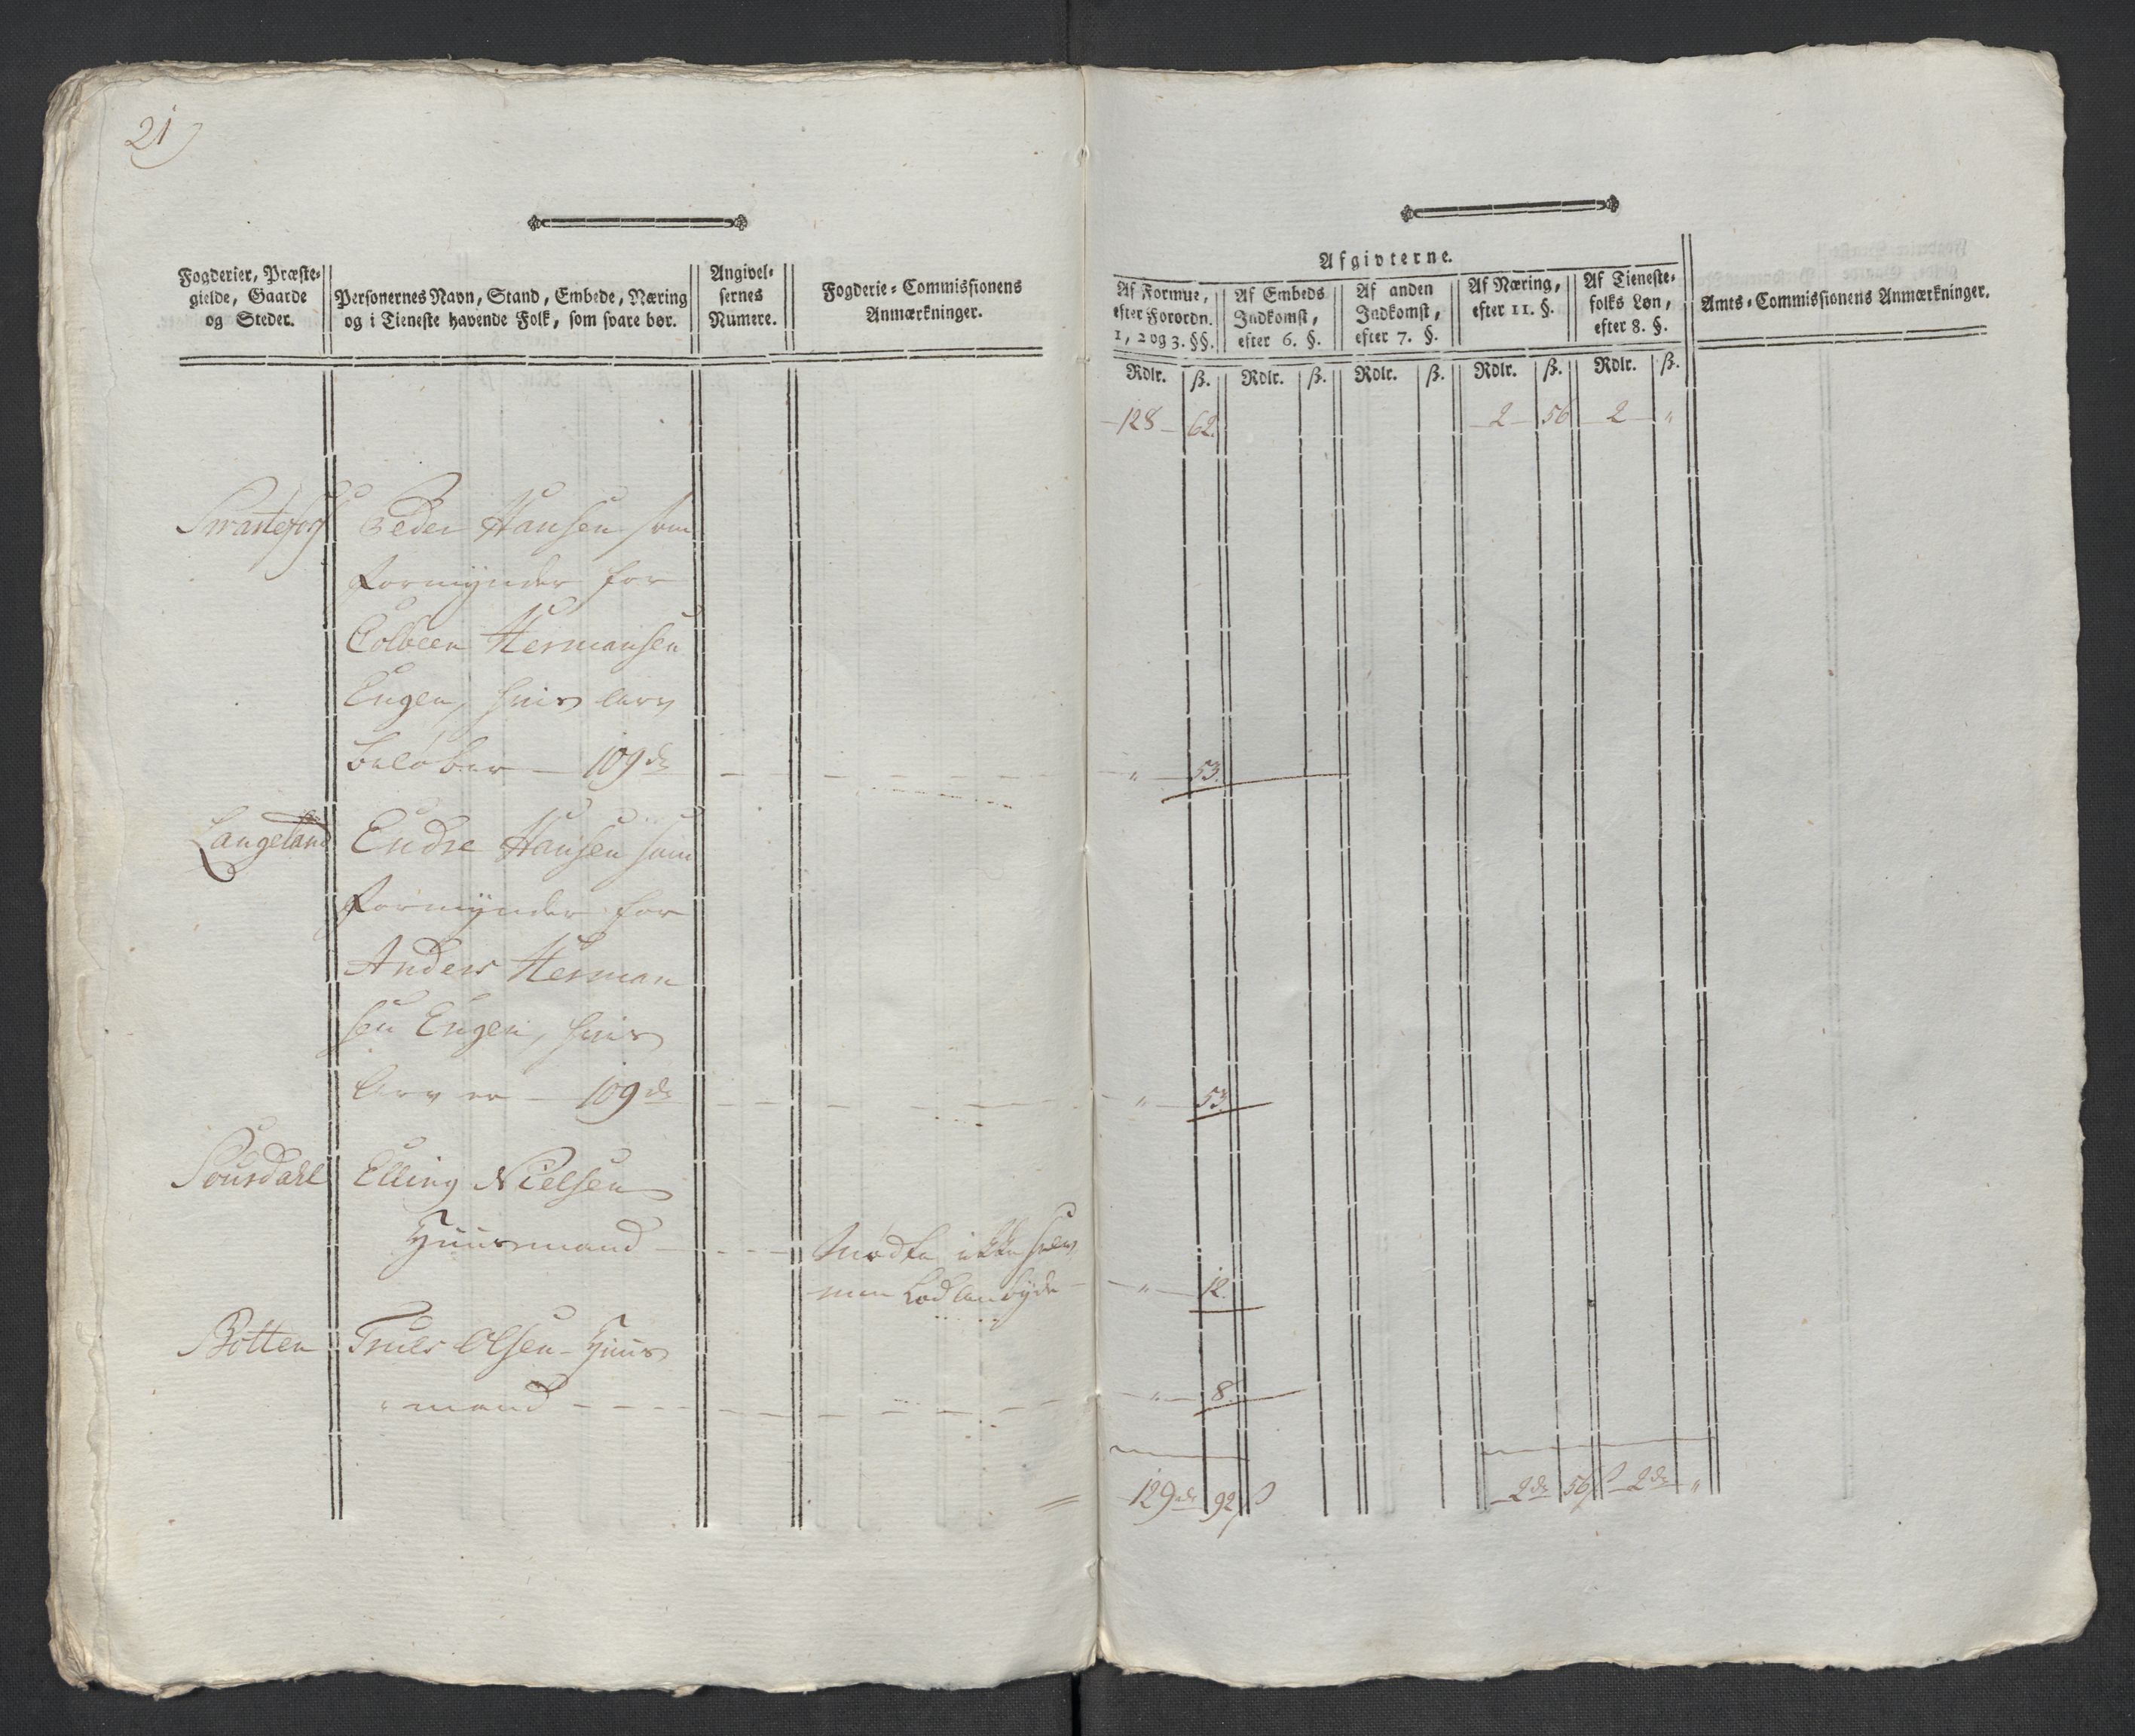 21
Fogderier, Præste-
gielde, Gaarde
og Steder.
Personernes Navn, Stand, Embede, Næring
og i Tieneste havende Folk, som svare bør.
Angivel-
sernes
Numere.
Fogderie-Commissionens
Anmærkninger.
Afgivterne.
Af Formue,
efter Forordn.
1, 2 og 3. §§.
Af Embeds
Indkomst,
efter 6. §.
Af anden
Indkomst,
efter 7. §.
Af Næring,
efter 11. §.
Af Tieneste-
folks Løn,
efter 8. §.
Amts-Commissionens Anmærkninger.
Rdlr. ß. Rdlr. ß. Rdlr. ß. Rdlr. ß. Rdlr. ß.
128 62. 2 56 2 "
Peder Hansen som
Formynder for
Colbeen Hermansen
Engen, hvis Arv
beløber 109 rd " 53.
Langeland Endre Hansen som
Formynder for
Anders Herman
sen Engen, hvis
Arv er 109 rd " 53.
Sousdahl Elling Nielsen
Huusmand Mødte ikke selv
men Lod anbyde " 12.
Botten Truls Olsen Huus
mand " 8.
129 rd 92 ß 2 rd 56 ß 2 rd "